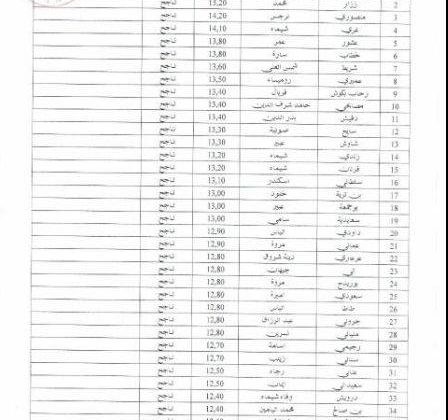 2 نزار محمد 15,20 ناجح
3 منصوري نرجس 14,20 ناجح
4 عرفي شيماء 14,10 ناجح
5 عشور عمر 13,80 ناجح
6 خطاب سارة 13,80 ناجح
7 شريط 13,60 ناجح
8 عميري روميساء 13,50 ناجح
9 رحاب فريال 13,40 ناجح
10 مصابحي شرف الدين 13,40 ناجح
11 دفيش بدر الدين 13,40 ناجح
12 سايح صونية 13,30 ناجح
13 شاوش عبير 13,30 ناجح
14 زندي شيماء 13,20 ناجح
15 فرحات شيماء 13,20 ناجح
16 سلطاني اسكندر 13,10 ناجح
17 بن خلود 13,00 ناجح
18 بوجمعة عبير 13,00 ناجح
19 سعيدية سامي 13,00 ناجح
20 داودي الياس 12,90 ناجح
21 عماني مروة 12,90 ناجح
22 عرعاري زينة شروق 12,80 ناجح
23 جيهان 12,80 ناجح
24 بوريدح مروة 12,80 ناجح
25 سعودي اميرة 12,80 ناجح
26 الياس 12,80 ناجح
27 عبد الرزاق 12,80 ناجح
28 نسرين 12,80 ناجح
29 رحيمي اسامة 12,70 ناجح
30 زينب 12,70 ناجح
31 رجاء 12,50 ناجح
32 سعيداني ايمان 12,50 ناجح
33 درويش وفاء شيماء 12,40 ناجح
34 بن صالح محمد 12,40 ناجح